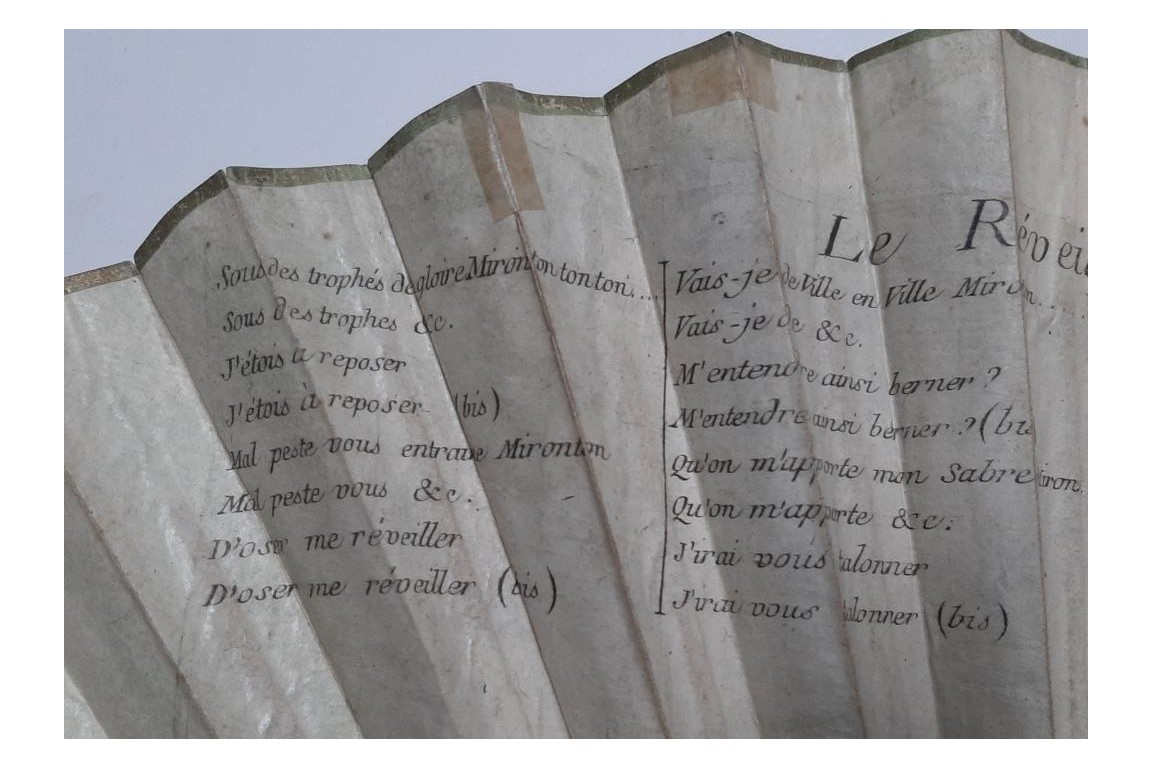 Le Révei
Sous des trophés de gloire Mironton ton ton....
Sous des trophes &c.
J'étois à reposer
J'étois à reposer (bis)
Mal peste vous entrane Mironton
Mal peste vous &c.
D'oser me réveiller
D'oser me réveiller (bis)
Vais-je de Ville en Ville Miron....
Vais-je de &c.
M'entendre ainsi berner ?
M'entendre ainsi berner ? (bis
Qu'on m'apporte mon Sabre miron.
Qu'on m'apporte &c.
J'irai vous talonner
J'irai vous talonner (bis)